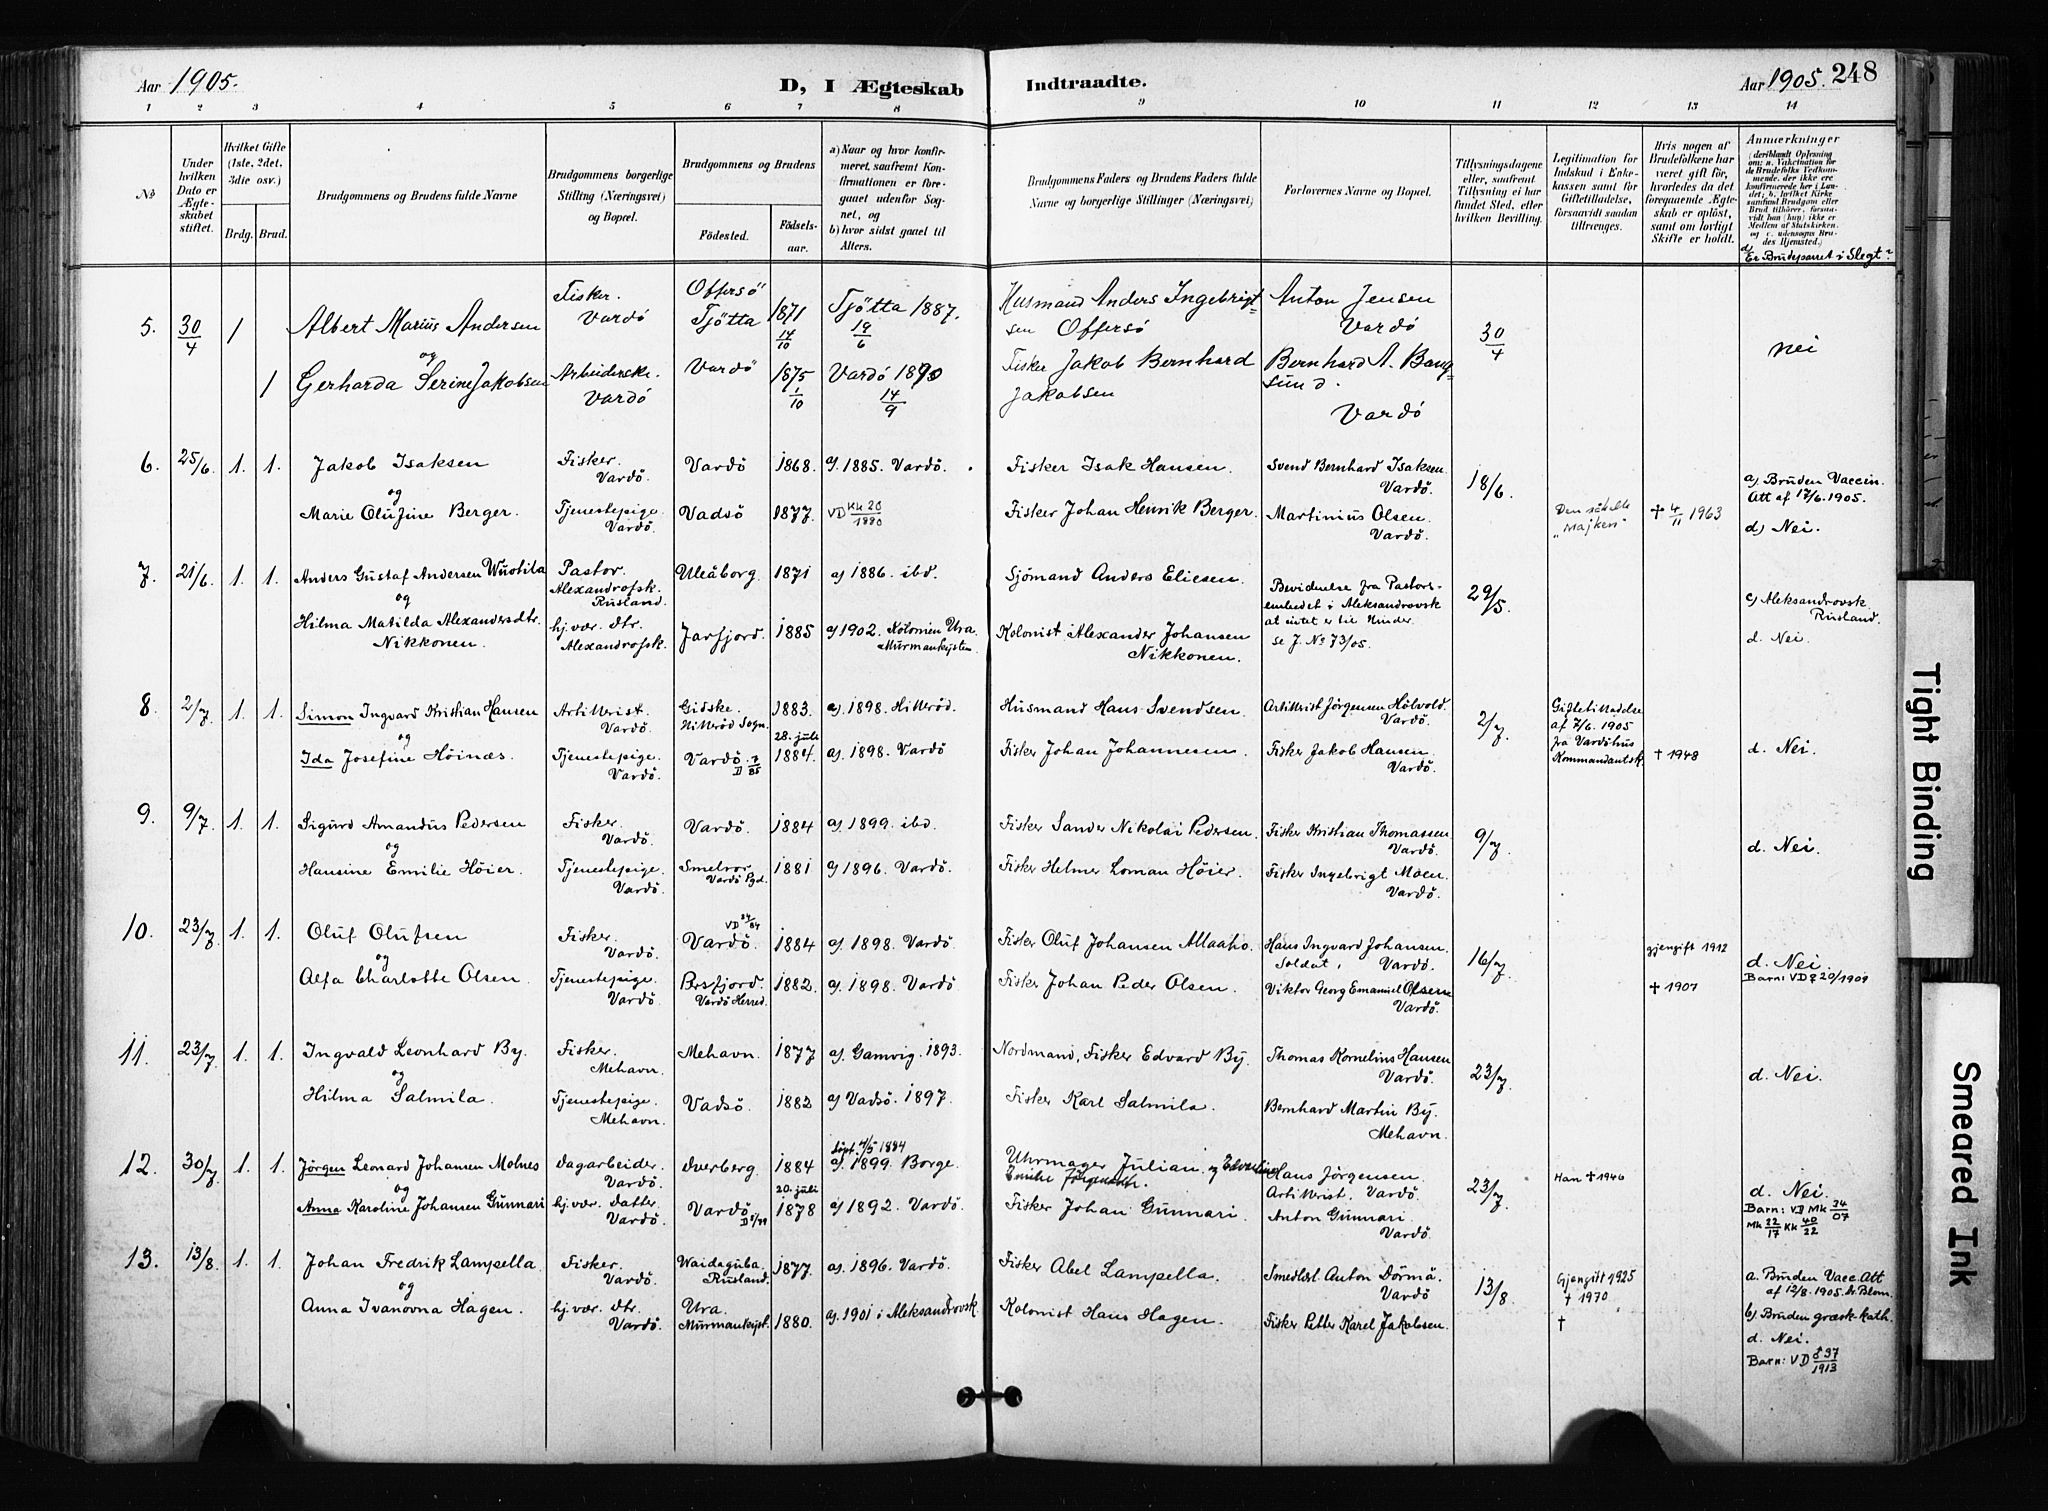 Aar 1905.
D, I Ægteskab Indtraadte.
Aar 1905. 248
1 2 3 4 5 6 7 8 9 10 11 12 13 14
No
Under hvilken Dato er Ægteskabet stiftet.
Hvilket Gifte (1ste, 2det, 3die osv.)
Brdg. Brud.
Brudgommens og Brudens fulde Navne
Brudgommens borgerlige Stilling (Næringsvei) og Bopæl.
Brudgommens og Brudens
Födested. Födselsaar.
a) Naar og hvor konfirmeret, saafremt Konfirmationen er foregaaet udenfor Sognet, og
b) hvor sidst gaaet til Alters.
Brudgommens Faders og Brudens Faders fulde Navne og borgerlige Stillinger (Næringsvei)
Forlovernes Navne og Bopæl.
Tillysningsdagene eller, saafremt Tillysning ei har fundet Sted, efter hvilken Bevilling.
Legitimation for Indskud i Enkekassen samt for Giftetilladelse, forsaavidt saadan tiltrænges.
Hvis nogen af Brudefolkene har været gift før, hvorledes da det foregaaende Ægteskab er opløst, samt om lovligt Skifte er holdt.
Anmærkninger
(deriblandt Oplysning om: a. Vakcination for de Brudefolks Vedkommende, der ikke ere konfirmerede her i Landet; b. hvilket Kirkesamfund Brudgom eller Brud tilhører, forsaavidt han (hun) ikke er Medlem af Statskirken, og c. udensogns Brudes Hjemsted.)
d) Er Brudeparret i Slegt?
5. 30/4 1
Albert Marius Andersen
og
1 Gerharda Serine Jakobsen
Fisker. Vardö
Arbeiderske. Vardö
Offersö Tjötta 1871 14/10
Vardö 1875 1/10
Tjötta 1887. 19/6
Vardö 1890 14/9
Husmand Anders Ingebrigtsen Offersö
Fisker Jakob Bernhard Jakobsen
Anton Jensen Vardö
Bernhard A. Bangsund. Vardö
30/4
nei
6. 25/6. 1. 1.
Jakob Isaksen
og
Marie Olufine Berger.
Fisker. Vardö.
Tjenestepige. Vardö.
Vardö 1868.
Vadsö 1877.
a). 1885. Vardö.
VD Kk 20/1880
Fisker Isak Hansen.
Fisker Johan Henrik Berger.
Svend Bernhard Isaksen. Vardö.
Martinius Olsen. Vardö.
18/6.
"Majken"
† 4/11 1963
a) Bruden Vaccin. Att af 17/6. 1905.
d) Nei.
7. 21/6. 1. 1.
Anders Gustaf Andersen Wuotila
og
Hilma Matilda Alexandersdtr. Nikkonen.
Pastor. Alexandrofsk. Rusland.
hj. vær. dtr. Alexandrofsk.
Uleåborg. 1871
Jarfjord. 1885
a) 1886. ibd.
a) 1902. Kolonien Ura. Murmankysten.
Sjömand Anders Eliesen.
Kolonist Alexander Johansen Nikkonen.
Bevidnelse fra Pastorsembedet i Aleksandrovsk at intet er til Hinder.
se J. No 73/05.
29/5.
c) Aleksandrovsk. Rusland.
d. Nei.
8. 2/7. 1. 1.
Simon Ingvard Kristian Hansen
og
Ida Josefine Höinæs.
Artillerist. Vardö.
Tjenestepige. Vardö.
Gidske. Hitterød Sogn. 1883.
28. juli
Vardö. D 7/85 1884.
a). 1898. Hitterød.
a). 1898. Vardö
Husmand Hans Svendsen.
Fisker Johan Johannesen.
Artillrist Jörgensen Hölvold. Vardö.
Fisker Jakob Hansen. Vardö.
2/7.
Giftetilladelse af 7/6. 1905 fra Vardöhus Kommandantsk.
† 1948
d. Nei.
9. 9/7. 1. 1.
Sigurd Amandus Pedersen
og
Hansine Emilie Höier.
Fisker. Vardö.
Tjenestepige. Vardö.
Vardö. 1884
Smelror. Vardö Pgd. 1881
a). 1899. ibd.
a) 1896. Vardö.
Fisker Sander Nikolai Pedersen.
Fisker Helmer Loman Höier.
Fisker Kristian Thomassen Vardö.
Fisker Ingebrigt Moen. Vardö.
9/7.
d. Nei.
10. 23/7. 1. 1.
Oluf Olufsen
og
Alfa Charlotte Olsen.
Fisker. Vardö.
Tjenestepige. Vardö.
VD 34/84
Vardö. 1884
Persfjord. Vardö Herred. 1882.
a). 1898. Vardö
a). 1898. Vardö
Fisker Oluf Johansen Allaaho.
Fisker Johan Peder Olsen.
Hans Ingvard Johansen. Soldat, Vardö.
Viktor Georg Emanuel Olsen Vardö.
16/7.
gjengift 1912
† 1907
d. Nei.
Barn: VD ♀ 20/1909
11. 23/7. 1. 1.
Ingvald Leonhard By.
og
Hilma Salmila.
Fisker. Mehavn.
Tjenestepige. Mehavn.
Mehavn. 1877
Vadsö. 1882
a). Gamvig. 1893.
a) Vadsö. 1897.
Nordmand, Fisker Edvard By.
Fisker Karl Salmila.
Thomas Kornelius Hansen Vardö.
Bernhard Martin By. Mehavn.
23/7.
d. Nei.
12. 30/7. 1. 1.
Jörgen Leonard Johansen Molnes
og
Anna Karoline Johansen Gunnari
Dagarbeider. Vardö.
hj. vær. Datter. Vardö.
Dverberg. 1884
20. juli
Vardö. 1878
döpt. 4/5 1884
a). 1899. Borge.
a) 1892. Vardö.
Uhrmager Julian og Edvardine Emilie
Fisker Johan Gunnari.
Hans Jörgensen. Artillrist. Vardö.
Anton Gunnari. Vardö.
23/7.
Han † 1946
d. Nei.
Barn: VD Mk 34/07
Mk 22/17 Kk 40/22
13. 13/8. 1. 1.
Johan Fredrik Lampella.
og
Anna Ivanovna Hagen.
Fisker. Vardö.
hj. vær. dtr. Vardö.
Waidaguba. Rusland. 1877
Ura. Murmankyst. 1880.
a). 1896. Vardö.
a). 1901 i Aleksandrovsk
Fisker Abel Lampella.
Kolonist Hans Hagen.
Smedlærl. Anton Dörmä. Vardö
Fisker Petter Karel Jakobsen.
13/8.
Gjengift 1925
† 1970
†
a. Bruden Vacc. Att af 12/8. 1905. Blom.
b). Bruden græsk-kath.
d. Nei.
Barn: VD ♂ 37/1913
Tight Binding
Smeared Ink